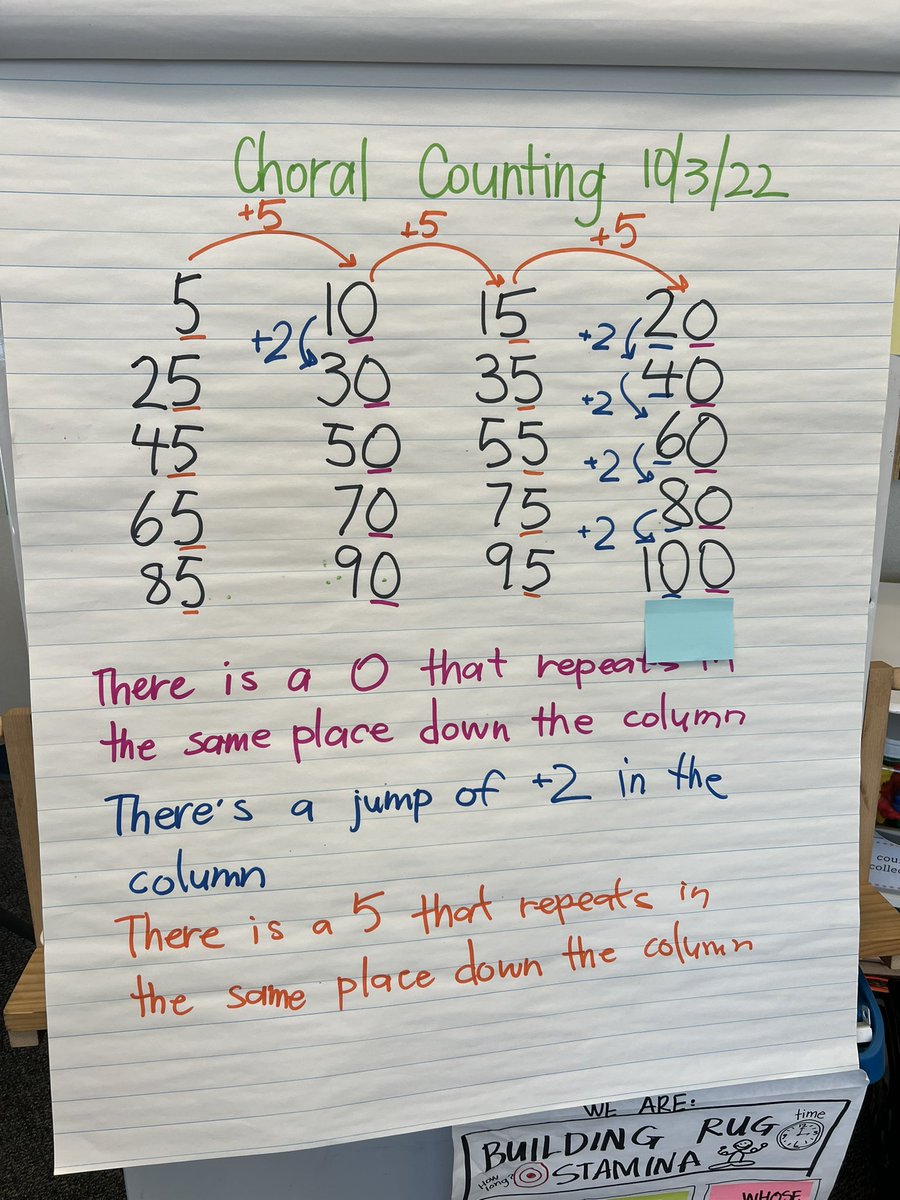 Choral Counting 10/3/22
+5 +5 +5
5 10 15 20
+2 +2
25 30 35 40
+2
45 50 55 60
+2
65 70 75 80
+2
85 90 95 100
There is a 0 that repeats in
the same place down the column
There's a jump of +2 in the
column
There is a 5 that repeats in
the same place down the column
WE ARE:
BUILDING RUG time
How long? STAMINA
WHOSE